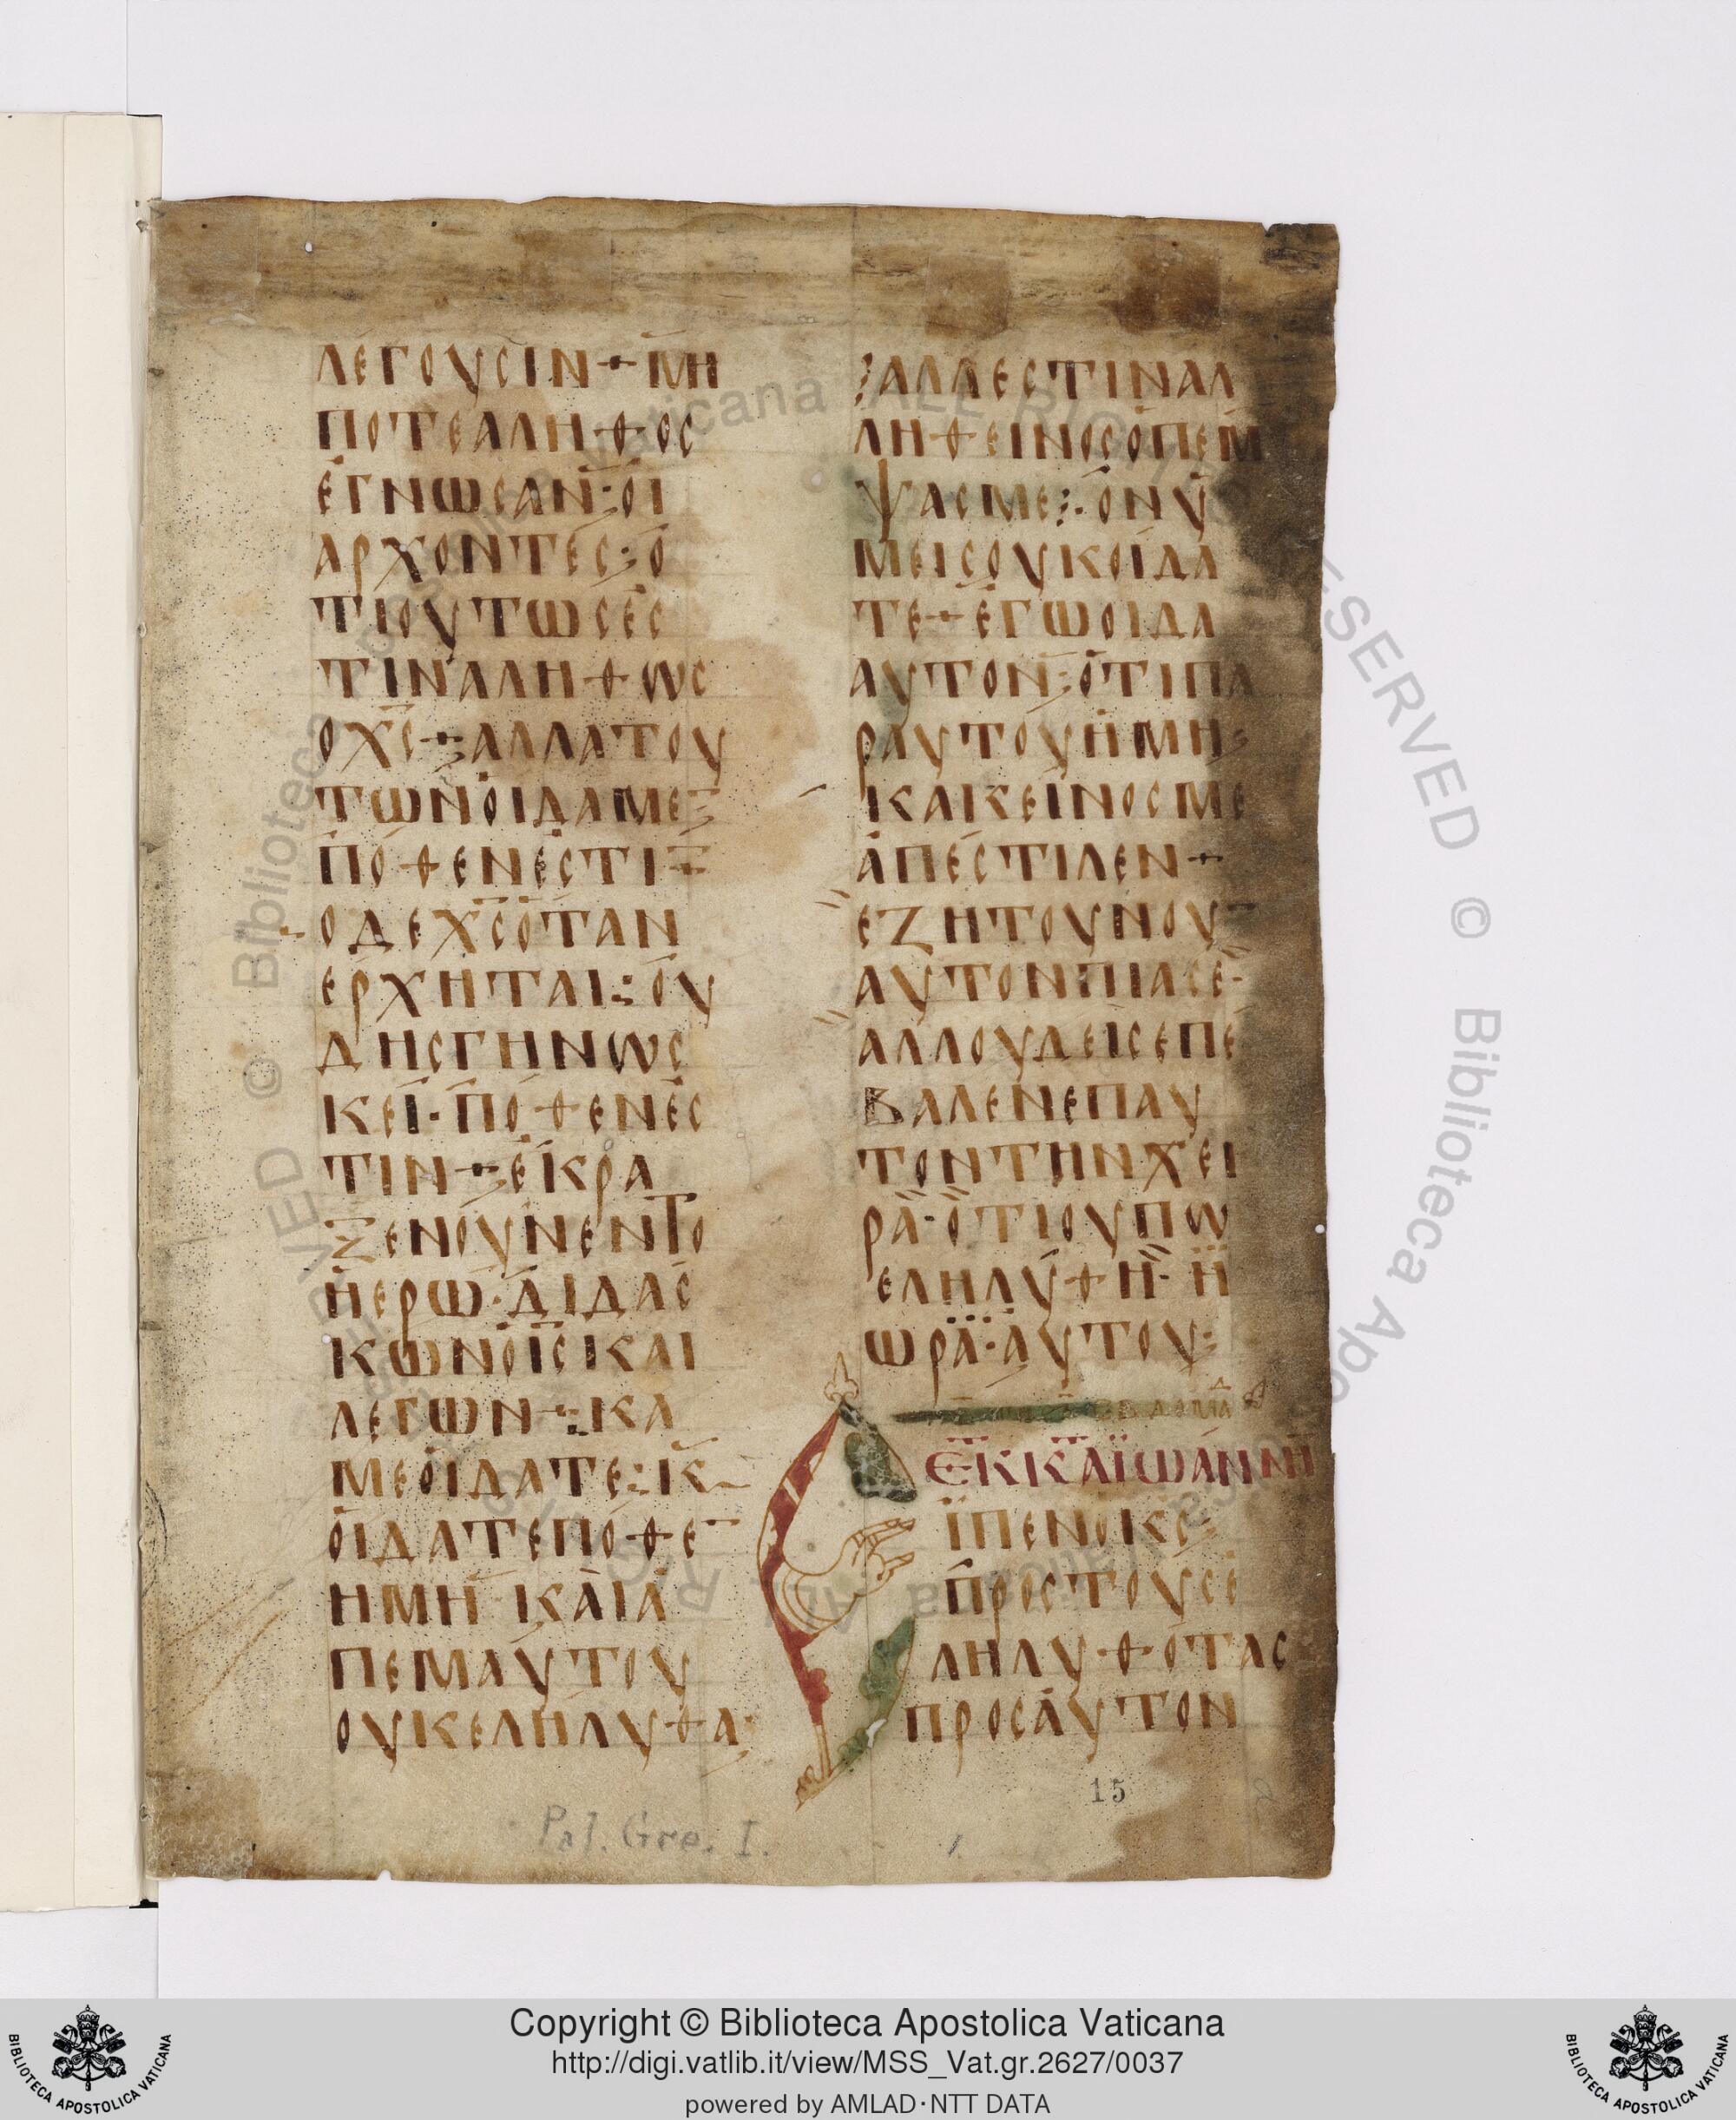 ΛΕΓΟΥСΙΝ + ΜΗ
ΠΟΤΕΑΛΗΘΟС
ΕΓΝΩСΑΝ : ΟΙ
ΑΡΧΟΝΤΕС : Ο
ΤΙΟΥΤΩСΕС
ΤΙΝΑΛΗΘΩС
ΟΧС + ΑΛΛΑΤΟΥ
ΤΩΝΟΙΔΑΜΕ
ΠΟΘΕΝΕСΤΙ
ΟΔΕΧСΟΤΑΝ
ΕΡΧΗΤΑΙ : ΟΥ
ΔΗСΓΗΝΩС
ΚΕΙ · ΠΟΘΕΝΕС
ΤΙΝ + ΕΚΡΑ
ΞΕΝΟΥΝΕΝΤΟ
ΗΕΡΩ · ΔΙΔΑС
ΚΩΝΟΙС ΚΑΙ
ΛΕΓΩΝ + ΚΑ
ΜΕΟΙΔΑΤΕ : Κ
ΟΙΔΑΤΕΠΟΘΕ
ΗΜΗ ΚΑΙΑ
ΠΕΜΑΥΤΟΥ
ΟΥΚΕΛΗΛΥΘΑ
ΑΛΛΕСΤΙΝΑΛ
ΛΗΘΕΙΝΟСΟΠΕΜ
ΨΑСΜΕ : ΟΝΥ
ΜΕΙСΟΥΚΟΙΔΑ
ΤΕ + ΕΓΩΟΙΔΑ
ΑΥΤΟΝ : ΟΤΙΠΑ
ΡΑΥΤΟΥΗΜΗ
ΚΑΚΕΙΝΟСΜΕ
ΑΠΕСΤΙΛΕΝ +
ΕΖΗΤΟΥΝΟΥ
ΑΥΤΟΝΠΙΑСΕ
ΑΛΛΟΥΔΕΙСΕΠΕ
ΒΑΛΕΝΕΠΑΥ
ΤΟΝΤΗΝΧΕΙ
ΡΑ · ΟΤΙΟΥΠΩ
ΕΛΗΛΥΘΗ · Η
ΩΡΑ · ΑΥΤΟΥ :
ΒΔΟΜΑΔ
ΕΚ Κ̅Α̅ ΙΩΑΝΝΗ
ΕΙΠΕΝΟΚС
ΠΡΟСΤΟΥСΕ
ΛΗΛΥΘΟΤΑС
ΠΡΟСΑΥΤΟΝ
15
Pal. Gre. I.
1.
Copyright © Biblioteca Apostolica Vaticana
http://digi.vatlib.it/view/MSS_Vat.gr.2627/0037
powered by AMLAD·NTT DATA
BIBLIOTECA APOSTOLICA VATICANA
BIBLIOTECA APOSTOLICA VATICANA